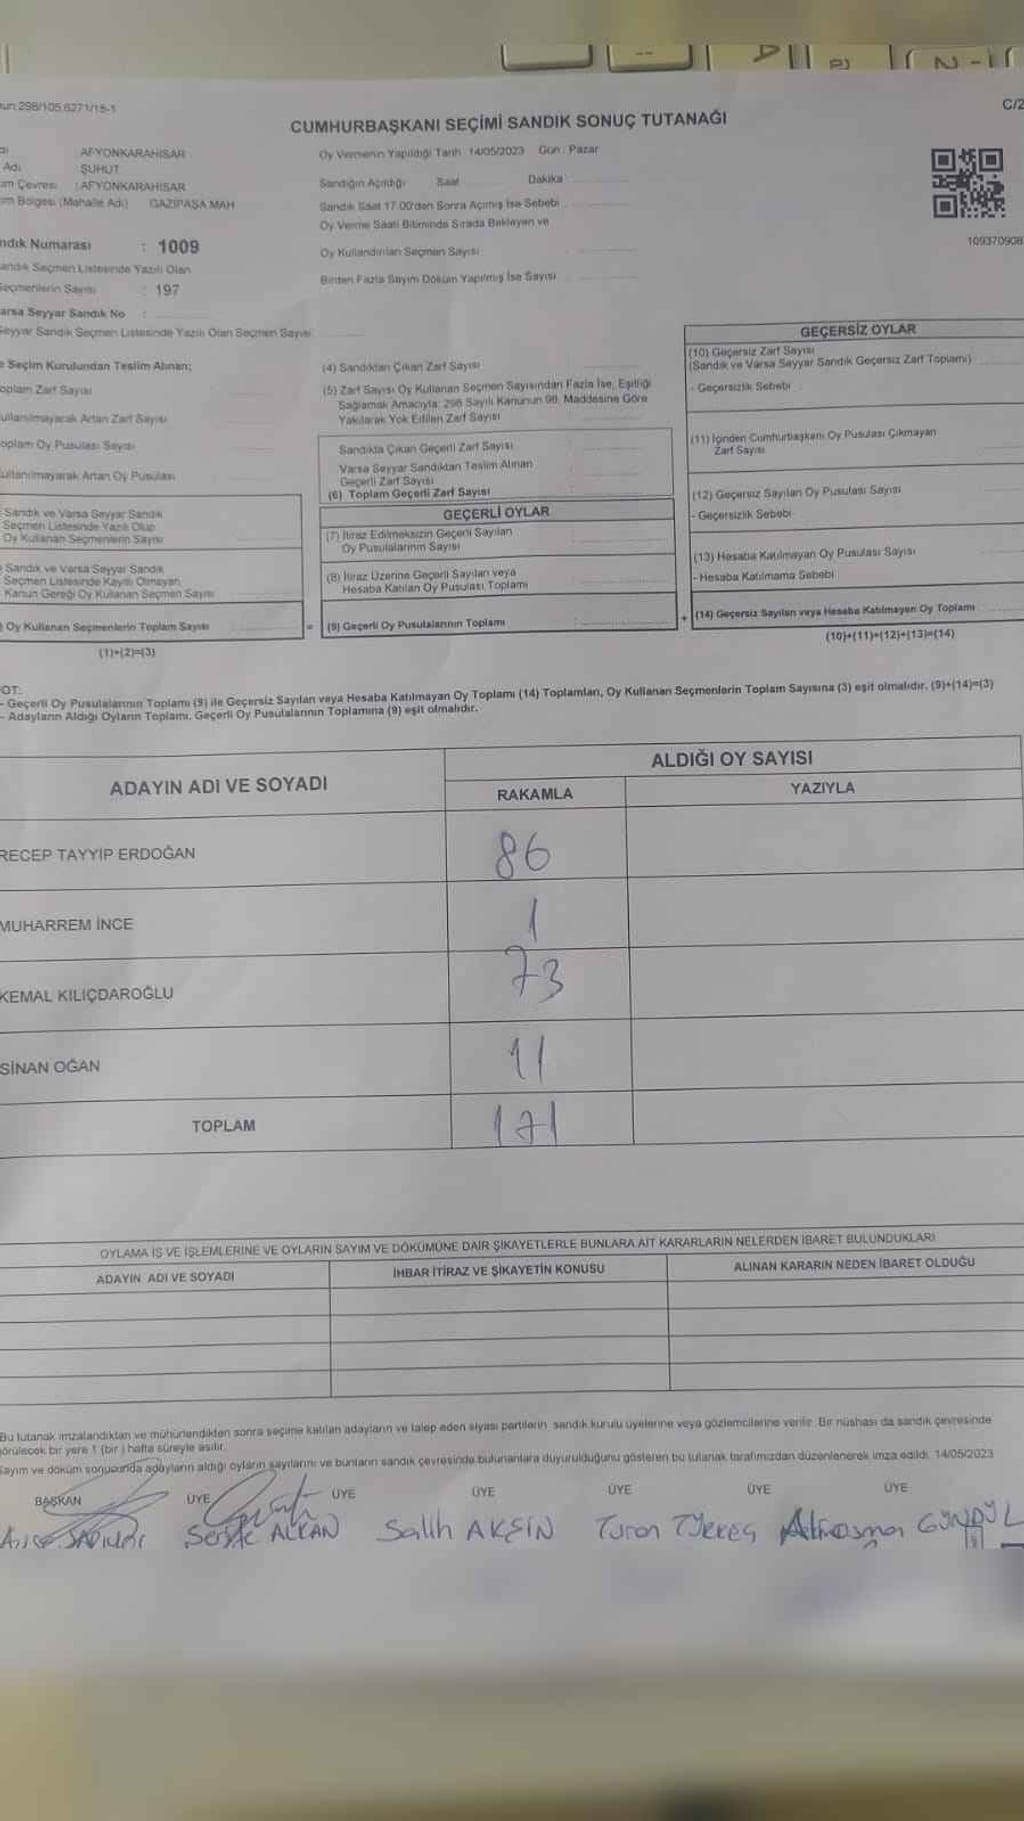 298/105,6271/15-1
C/2
CUMHURBAŞKANI SEÇİMİ SANDIK SONUÇ TUTANAĞI
AFYONKARAHİSAR
Adı ŞUHUT
Çevresi : AFYONKARAHİSAR
Bölgesi (Mahalle Adı) GAZİPAŞA MAH
Numarası : 1009
Sandık Seçmen Listesinde Yazılı Olan
Seçmenlerin Sayısı : 197
Varsa Seyyar Sandık No :
Seyyar Sandık Seçmen Listesinde Yazılı Olan Seçmen Sayısı
Oy Vermenin Yapıldığı Tarih : 14/05/2023 Gün : Pazar
Sandığın Açıldığı Saat Dakika
Sandık Saat 17.00'den Sonra Açılmış İse Sebebi
Oy Verme Saati Bitiminde Sırada Bekleyen ve
Oy Kullandırılan Seçmen Sayısı
Birden Fazla Sayım Döküm Yapılmış İse Sayısı
109370908
Seçim Kurulundan Teslim Alınan;
Toplam Zarf Sayısı
Kullanılmayacak Artan Zarf Sayısı
Toplam Oy Pusulası Sayısı
Kullanılmayarak Artan Oy Pusulası
Sandık ve Varsa Seyyar Sandık
Seçmen Listesinde Yazılı Olup
Oy Kullanan Seçmenlerin Sayısı
Sandık ve Varsa Seyyar Sandık
Seçmen Listesinde Kayıtlı Olmayan
Kanun Gereği Oy Kullanan Seçmen Sayısı
Oy Kullanan Seçmenlerin Toplam Sayısı
(1)+(2)=(3)
(4) Sandıktan Çıkan Zarf Sayısı
(5) Zarf Sayısı Oy Kullanan Seçmen Sayısından Fazla İse, Eşitliği
Sağlamak Amacıyla; 298 Sayılı Kanunun 98. Maddesine Göre
Yakılarak Yok Edilen Zarf Sayısı
Sandıkta Çıkan Geçerli Zarf Sayısı
Varsa Seyyar Sandıktan Teslim Alınan
Geçerli Zarf Sayısı
(6) Toplam Geçerli Zarf Sayısı
GEÇERLİ OYLAR
(7) İtiraz Edilmeksizin Geçerli Sayılan
Oy Pusulalarının Sayısı
(8) İtiraz Üzerine Geçerli Sayılan veya
Hesaba Katılan Oy Pusulası Toplamı
= (9) Geçerli Oy Pusulalarının Toplamı
GEÇERSİZ OYLAR
(10) Geçersiz Zarf Sayısı
(Sandık ve Varsa Seyyar Sandık Geçersiz Zarf Toplamı)
- Geçersizlik Sebebi
(11) İçinden Cumhurbaşkanı Oy Pusulası Çıkmayan
Zarf Sayısı
(12) Geçersiz Sayılan Oy Pusulası Sayısı
- Geçersizlik Sebebi
(13) Hesaba Katılmayan Oy Pusulası Sayısı
- Hesaba Katılmama Sebebi
+ (14) Geçersiz Sayılan veya Hesaba Katılmayan Oy Toplamı
(10)+(11)+(12)+(13)=(14)
OT:
- Geçerli Oy Pusulalarının Toplamı (9) ile Geçersiz Sayılan veya Hesaba Katılmayan Oy Toplamı (14) Toplamları, Oy Kullanan Seçmenlerin Toplam Sayısına (3) eşit olmalıdır. (9)+(14)=(3)
- Adayların Aldığı Oyların Toplamı, Geçerli Oy Pusulalarının Toplamına (9) eşit olmalıdır.
ADAYIN ADI VE SOYADI
ALDIĞI OY SAYISI
RAKAMLA YAZIYLA
RECEP TAYYİP ERDOĞAN 86
MUHARREM İNCE 1
KEMAL KILIÇDAROĞLU 73
SİNAN OĞAN 11
TOPLAM 171
OYLAMA İŞ VE İŞLEMLERİNE VE OYLARIN SAYIM VE DÖKÜMÜNE DAİR ŞİKAYETLERLE BUNLARA AİT KARARLARIN NELERDEN İBARET BULUNDUKLARI
ADAYIN ADI VE SOYADI İHBAR İTİRAZ VE ŞİKAYETİN KONUSU ALINAN KARARIN NEDEN İBARET OLDUĞU
Bu tutanak imzalandıktan ve mühürlendikten sonra seçime katılan adayların ve talep eden siyasi partilerin sandık kurulu üyelerine veya gözlemcilerine verilir. Bir nüshası da sandık çevresinde
görülecek bir yere 1 (bir) hafta süreyle asılır.
Sayım ve döküm sonucunda adayların aldığı oyların sayılarını ve bunların sandık çevresinde bulunanlara duyurulduğunu gösteren bu tutanak tarafımızdan düzenlenerek imza edildi. 14/05/2023
BAŞKAN ÜYE ÜYE ÜYE ÜYE ÜYE ÜYE
ALKAN Salih AKSİN Turan GÜNDÜL